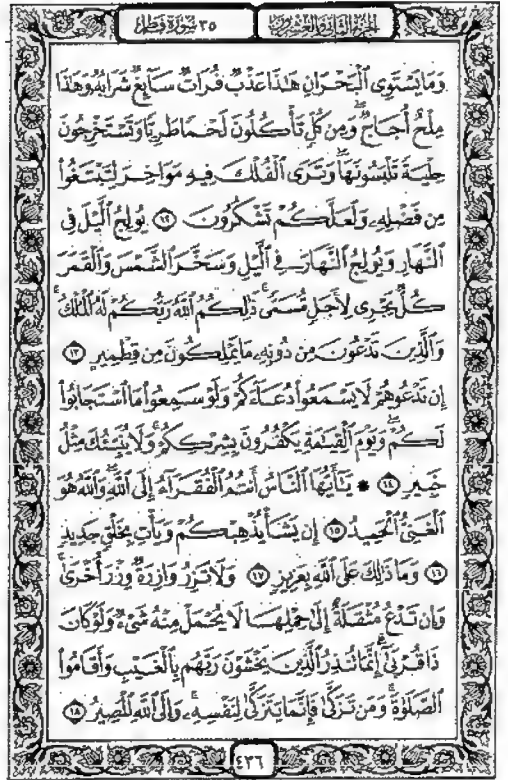 الجزء الثاني والعشرون
٣٥ سورة فاطر
وَمَا يَسۡتَوِي ٱلۡبَحۡرَانِ هَٰذَا عَذۡبٞ فُرَاتٞ سَآئِغٞ شَرَابُهُۥ وَهَٰذَا
مِلۡحٌ أُجَاجٞۖ وَمِن كُلّٖ تَأۡكُلُونَ لَحۡمٗا طَرِيّٗا وَتَسۡتَخۡرِجُونَ
حِلۡيَةٗ تَلۡبَسُونَهَاۖ وَتَرَى ٱلۡفُلۡكَ فِيهِ مَوَاخِرَ لِتَبۡتَغُواْ
مِن فَضۡلِهِۦ وَلَعَلَّكُمۡ تَشۡكُرُونَ ١٢ يُولِجُ ٱلَّيۡلَ فِي
ٱلنَّهَارِ وَيُولِجُ ٱلنَّهَارَ فِي ٱلَّيۡلِ وَسَخَّرَ ٱلشَّمۡسَ وَٱلۡقَمَرَ
كُلّٞ يَجۡرِي لِأَجَلٖ مُّسَمّٗىۚ ذَٰلِكُمُ ٱللَّهُ رَبُّكُمۡ لَهُ ٱلۡمُلۡكُۚ
وَٱلَّذِينَ تَدۡعُونَ مِن دُونِهِۦ مَا يَمۡلِكُونَ مِن قِطۡمِيرٍ ١٣
إِن تَدۡعُوهُمۡ لَا يَسۡمَعُواْ دُعَآءَكُمۡ وَلَوۡ سَمِعُواْ مَا ٱسۡتَجَابُواْ
لَكُمۡۖ وَيَوۡمَ ٱلۡقِيَٰمَةِ يَكۡفُرُونَ بِشِرۡكِكُمۡۚ وَلَا يُنَبِّئُكَ مِثۡلُ
خَبِيرٖ ١٤ ۞ يَٰٓأَيُّهَا ٱلنَّاسُ أَنتُمُ ٱلۡفُقَرَآءُ إِلَى ٱللَّهِۖ وَٱللَّهُ هُوَ
ٱلۡغَنِيُّ ٱلۡحَمِيدُ ١٥ إِن يَشَأۡ يُذۡهِبۡكُمۡ وَيَأۡتِ بِخَلۡقٖ جَدِيدٖ
١٦ وَمَا ذَٰلِكَ عَلَى ٱللَّهِ بِعَزِيزٖ ١٧ وَلَا تَزِرُ وَازِرَةٞ وِزۡرَ أُخۡرَىٰۚ
وَإِن تَدۡعُ مُثۡقَلَةٌ إِلَىٰ حِمۡلِهَا لَا يُحۡمَلۡ مِنۡهُ شَيۡءٞ وَلَوۡ كَانَ
ذَا قُرۡبَىٰٓۗ إِنَّمَا تُنذِرُ ٱلَّذِينَ يَخۡشَوۡنَ رَبَّهُم بِٱلۡغَيۡبِ وَأَقَامُواْ
ٱلصَّلَوٰةَۚ وَمَن تَزَكَّىٰ فَإِنَّمَا يَتَزَكَّىٰ لِنَفۡسِهِۦۚ وَإِلَى ٱللَّهِ ٱلۡمَصِيرُ ١٨
٤٣٦